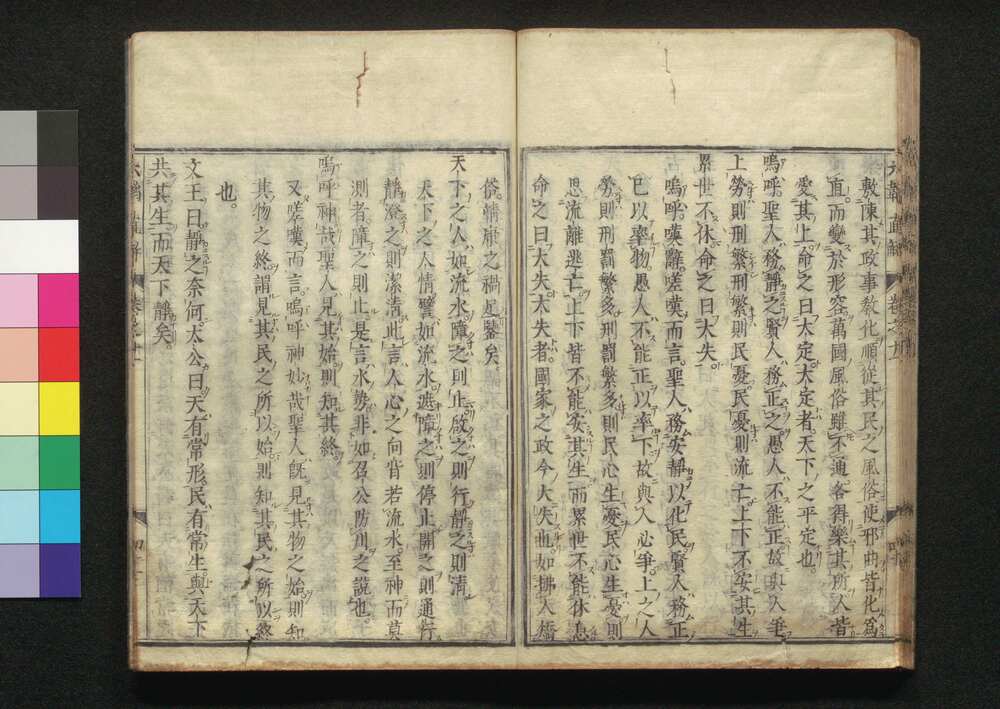 敷陳其政事敎化順從其民之風俗使邪曲皆化爲
直而變於形容萬國風俗雖不通各得樂其所人皆
愛其上命之曰大定大定者天下之平定也
嗚呼聖人務靜之賢人務正之愚人不能正故與人爭
上勞則刑繁刑繁則民憂民憂則流亡上下不安其生
累世不休命之曰大失
嗚呼嘆辭嗟嘆而言聖人務安靜以化民賢人務正
已以率物愚人不能正以率下故與人心爭上之人
勞則刑罰繁多刑罰繁多則民心生憂民心生憂則
思流離逃亡上下皆不能安其生而累世不能休息
命之曰大失大失者國家之政令大失也如
俗情
之禍足鑒矣
天下之人如流水障之則止啟之則行靜之則清
天下之人情譬如流水遮障之則停止開之則通行
靜澄之則潔清此言人心之向背若流水至神而莫
測者障之則止是言水勢非如召公防川之說也
嗚呼神哉聖人見其始則知其終
又嗟嘆而言嗚呼神妙哉聖人旣見其物之始則知
其物之終謂見其民之所以始則知其民之所以終
也
文王曰靜之奈何太公曰天有常形民有常生與天下
共其生而天下靜矣
六韜直解